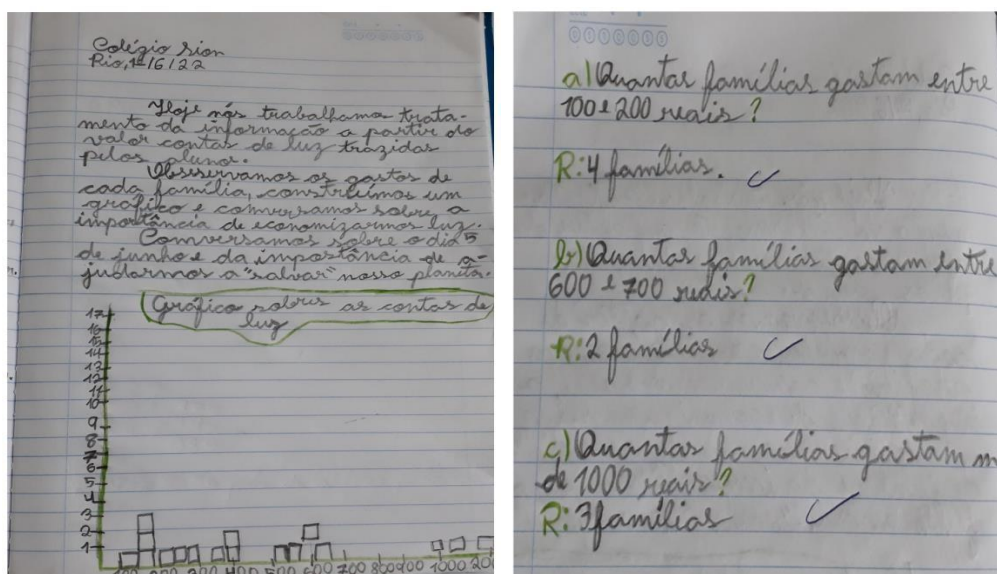 Colégio Sion
Rio, 1-/6/22
Hoje nós trabalhamos trata-
mento da informação a partir do
valor contas de luz trazidas
pelos alunos.
Observamos os gastos de
cada família, construímos um
gráfico e conversamos sobre a
importância de economizarmos luz.
Conversamos sobre o dia 5
de junho e da importância de a-
judarmos a "salvar" nosso planeta.
Gráfico sobre as contas de
luz
17
16
15
14
13
12
11
10
9
8
7
6
5
4
3
2
1
100 200 300 400 500 600 700 800 900 1000 200
a) Quantas famílias gastam entre
100 e 200 reais?
R: 4 famílias.
b) Quantas famílias gastam entre
600 e 700 reais?
R: 2 famílias
c) Quantas famílias gastam m
de 1000 reais?
R: 3 famílias